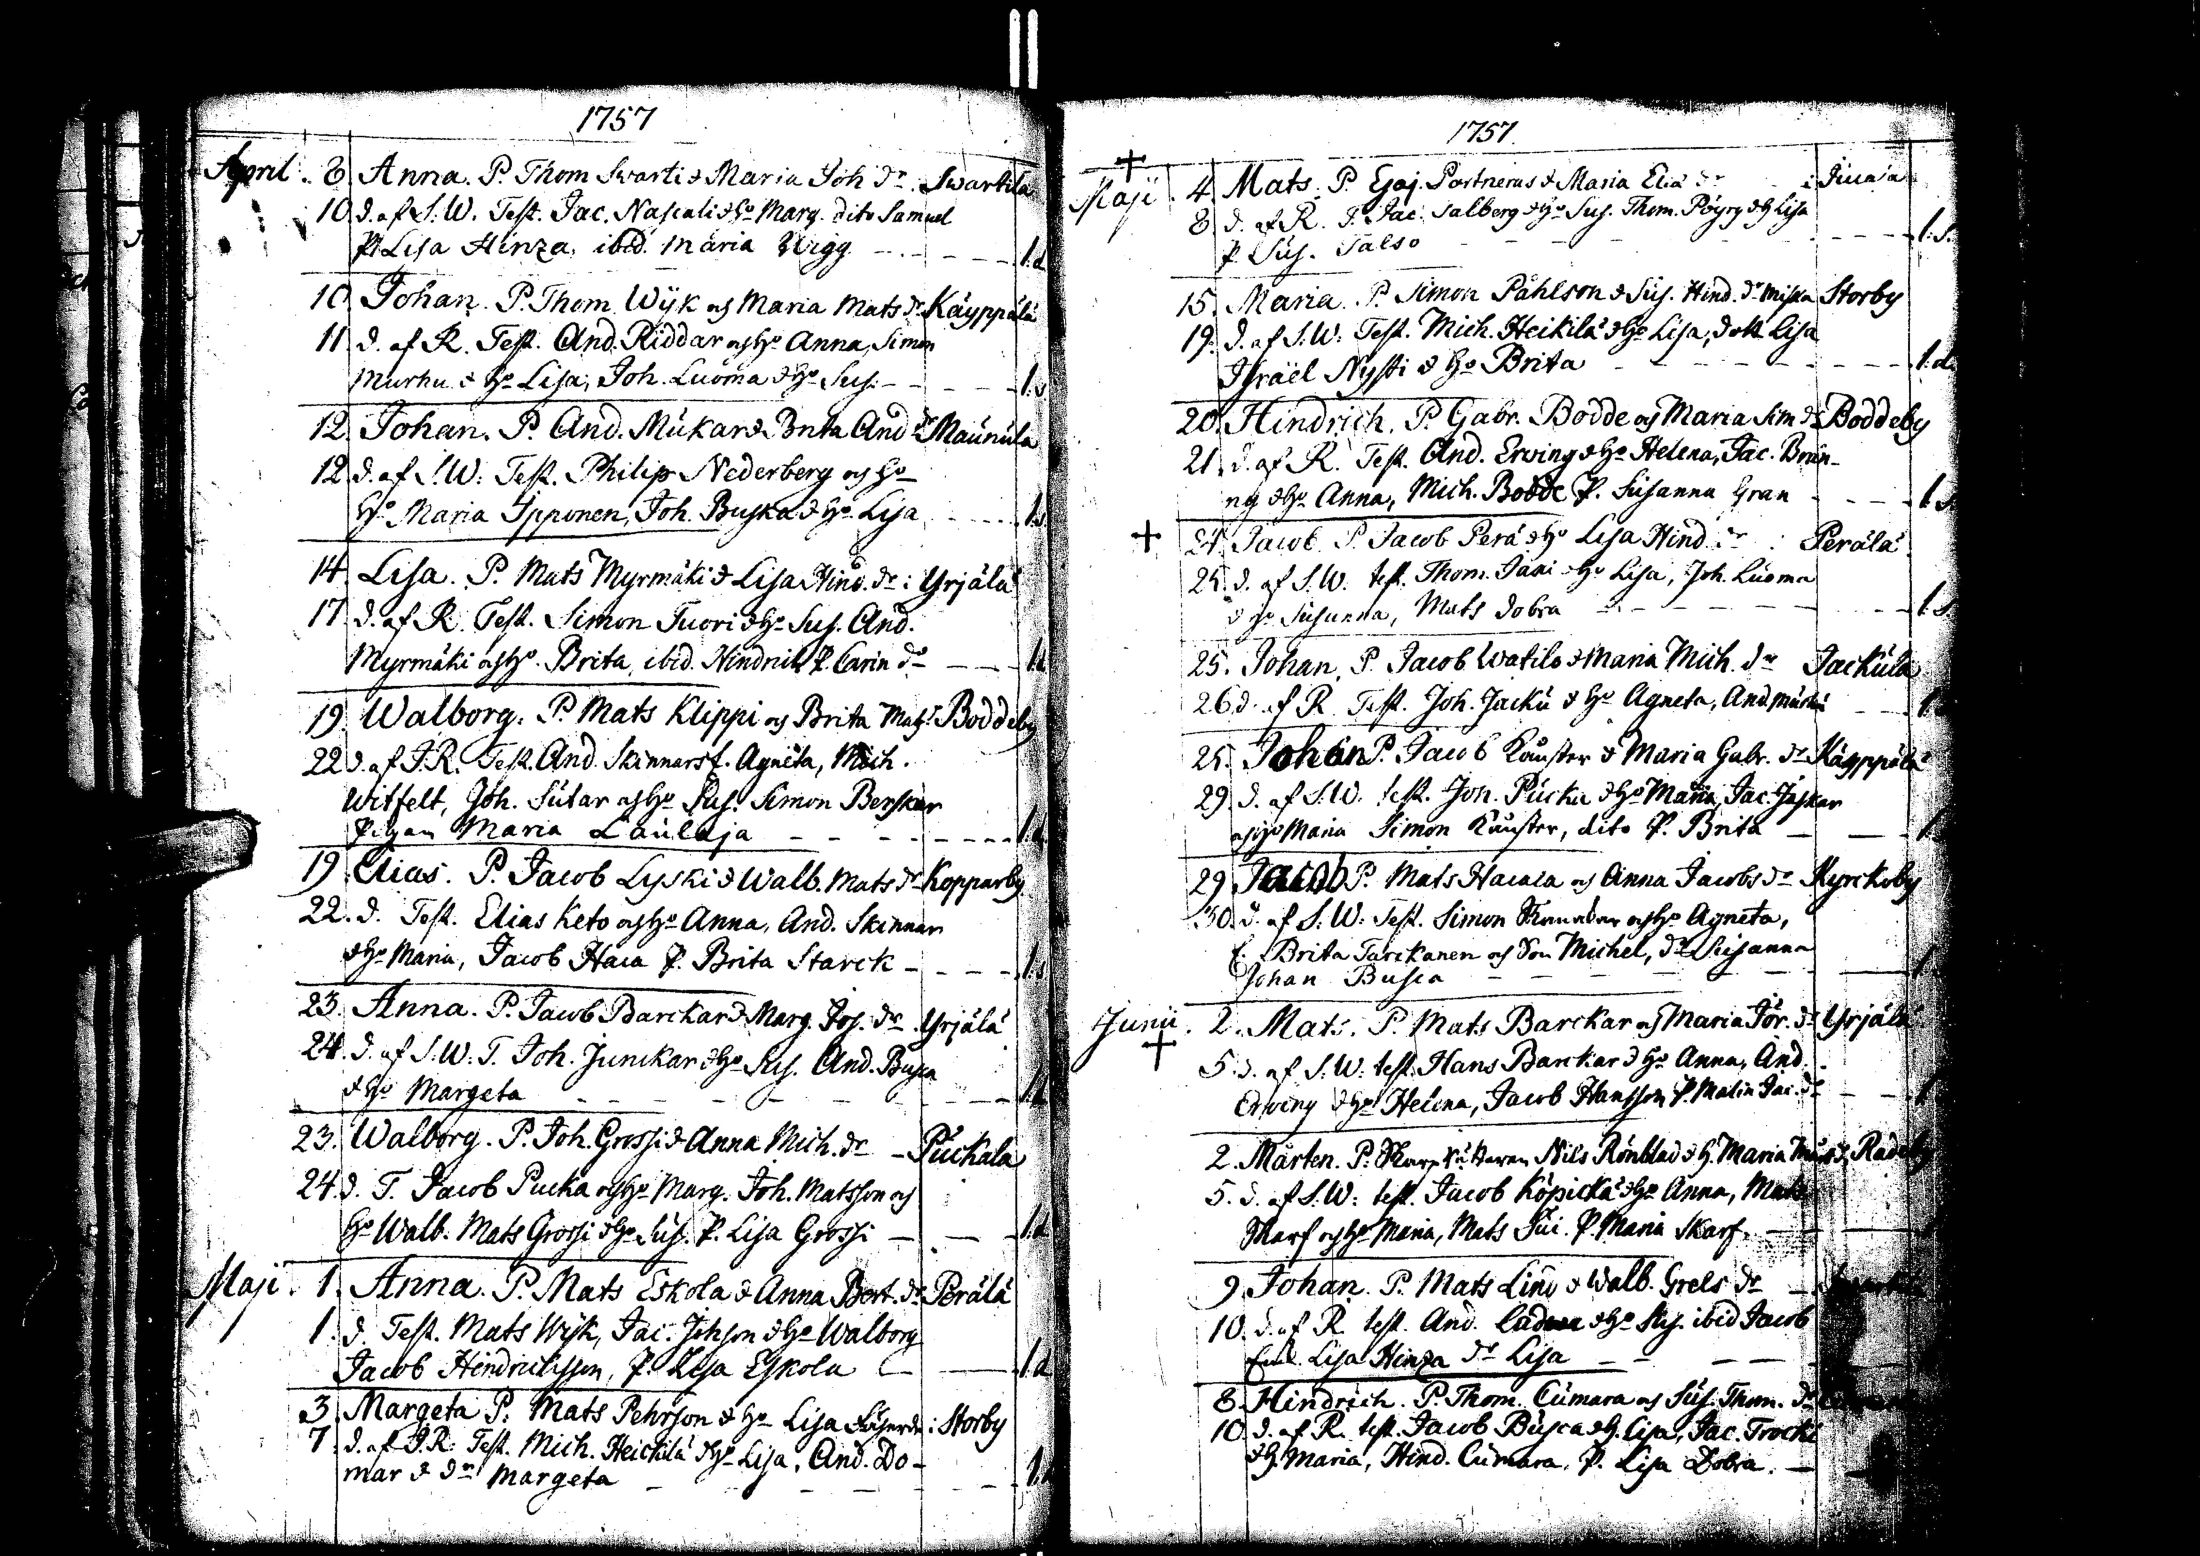 1757
April. 8. Anna. P. Thom Swarti & Maria Joh dr. Swartila
10 d. af S. W. Test. Jac. Nascali & Ho Marg. dito Samuel
P. Lisa Hinza, ibid. Maria Wigg - - - 1.d
10. Johan. P. Thom Wijk och Maria Mats dr Käyppälä
11 d. af R. Test. And. Riddar och Ho Anna, Simon
Murhu & Ho Lisa, Joh. Luoma & Ho Sus. - - - 1.s
12. Johan. P. And. Mukar & Brita And dr Maunula
12 d. af S. W: Test. Philip Nederberg och Ho
Ho Maria Ipponen, Joh. Buska & Ho Lisa - - - 1.s
14. Lisa. P. Mats Myrmäki & Lisa Hind. dr: Yrjälä
17. d. af R. Test. Simon Tuori & Ho Sus. And.
Myrmäki och Ho Brita, ibid. Hindrich P. Carin dr - - 1.d
19. Walborg. P. Mats Klippi och Brita Mats Boddeby
22 d. af J.R. Test. And. Skinnars f. Agneta, Mich.
Witfelt, Joh. Sutar och Ho Sus. Simon Berskar
Pigan Maria Laulaja - - - 1.d
19. Elias. P. Jacob Lyski & Walb. Mats dr Kopparby
22. d. Test. Elias Keto och Ho Anna, And. Skinnar
& Ho Maria, Jacob Haca P. Brita Starck - - - 1.s
23. Anna. P. Jacob Barckar & Marg. Jos. dr. Yrjälä
24. d. af S. W. T. Joh. Junckar & Ho Sus. And. Busca
& Ho Margeta - - - 1.d
23. Walborg. P. Joh. Grossi & Anna Mich. dr - Puckala
24. d. T. Jacob Pucka och Ho Marg. Joh. Matsson och
Ho Walb. Mats Grossi & Ho Sus. P. Lisa Grossi - - 1.d
Maji. 1. Anna. P. Mats Eskola & Anna Bert. dr Perälä
1. d. Test. Mats Wijk, Jac. Johson & Ho Walborg
Jacob Hindrichsson, P. Lisa Eskola - - 1.d
3. Margeta P. Mats Pehrson & Ho Lisa : Storby
7. d. af J.R. Test. Mich. Heickilä & Ho Lisa, And. Do-
mar & dr Margeta - - -
1757.
Maji. 4. Mats. P. Gaj. Portnerus & Maria Elia dr
8. d. af R. T. Jac. Salberg & Ho Sus. Thom. Pöyry & H Lisa
P. Sus. Salso - - - 1.s.
15. Maria. P. Simon Påhlson & Sus. Hind. dr Storby
19. d. af S. W: Test. Mich. Heikilä & Ho Lisa, dott Lisa
Israël Nysti & Ho Brita - - - 1.d.
20. Hindrich. P. Gabr. Bodde och Maria Sim dr Boddeby
21. d. af R. Test. And. Erving & Ho Helena, Jac. Brän-
ny & Ho Anna, Mich. Bodde P. Susanna Gran - - - 1.s.
24. Jacob. P. Jacob Perä & Ho Lisa Hind dr : Perälä
25. d. af S. W. test. Thom. Jaki & Ho Lisa, Joh. Luoma
& Ho Susanna, Mats Dobra - - - 1.s.
25. Johan. P. Jacob Watilo & Maria Mich. dr Jackula
26 d. af R Test. Joh. Jacku & Ho Agneta, And
25. Johan P. Jacob Kauster & Maria Gabr. dr Käyppälä
29. d. af S. W. test. Joh. Pucka & Ho Maria, Jac. Jäskar
och Ho Maria Simon Kauster, dito P. Brita - - 1.
29. Jacob P. Mats Hacala och Anna Jacobs dr Kyrckoby
30. d. af S. W: Test. Simon och Ho Agneta,
E. Brita Tarckanen och Son Michel, dr Susanna
Johan Busca - - - 1
Junii. 2. Mats. P. Mats Barckar och Maria Jör. dr Yrjälä
5. d. af S. W: test. Hans Barckar & Ho Anna, And.
Erving & Ho Helena, Jacob Hansson P. Malin Jac. dr - -
2. Mårten. P. Nils Rönblad & H. Maria
5. d. af S. W: test. Jacob Köpickä & Ho Anna, Mats
Skarf och Ho Maria, Mats Jui. P. Maria Skarf. -
9. Johan. P. Mats Lind & Walb. Grels dr -
10. d. af R. test. And. & Ho Sus. ibid Jacob
Lisa Hinza dr Lisa - - -
8. Hindrich. P. Thom. Cumara och Sus. Thom. dr
10 d. af R. test. Jacob Busca & H. Lisa, Jac. Trocki
& H. Maria, Hind. Cumara, P. Lisa Dobra. -